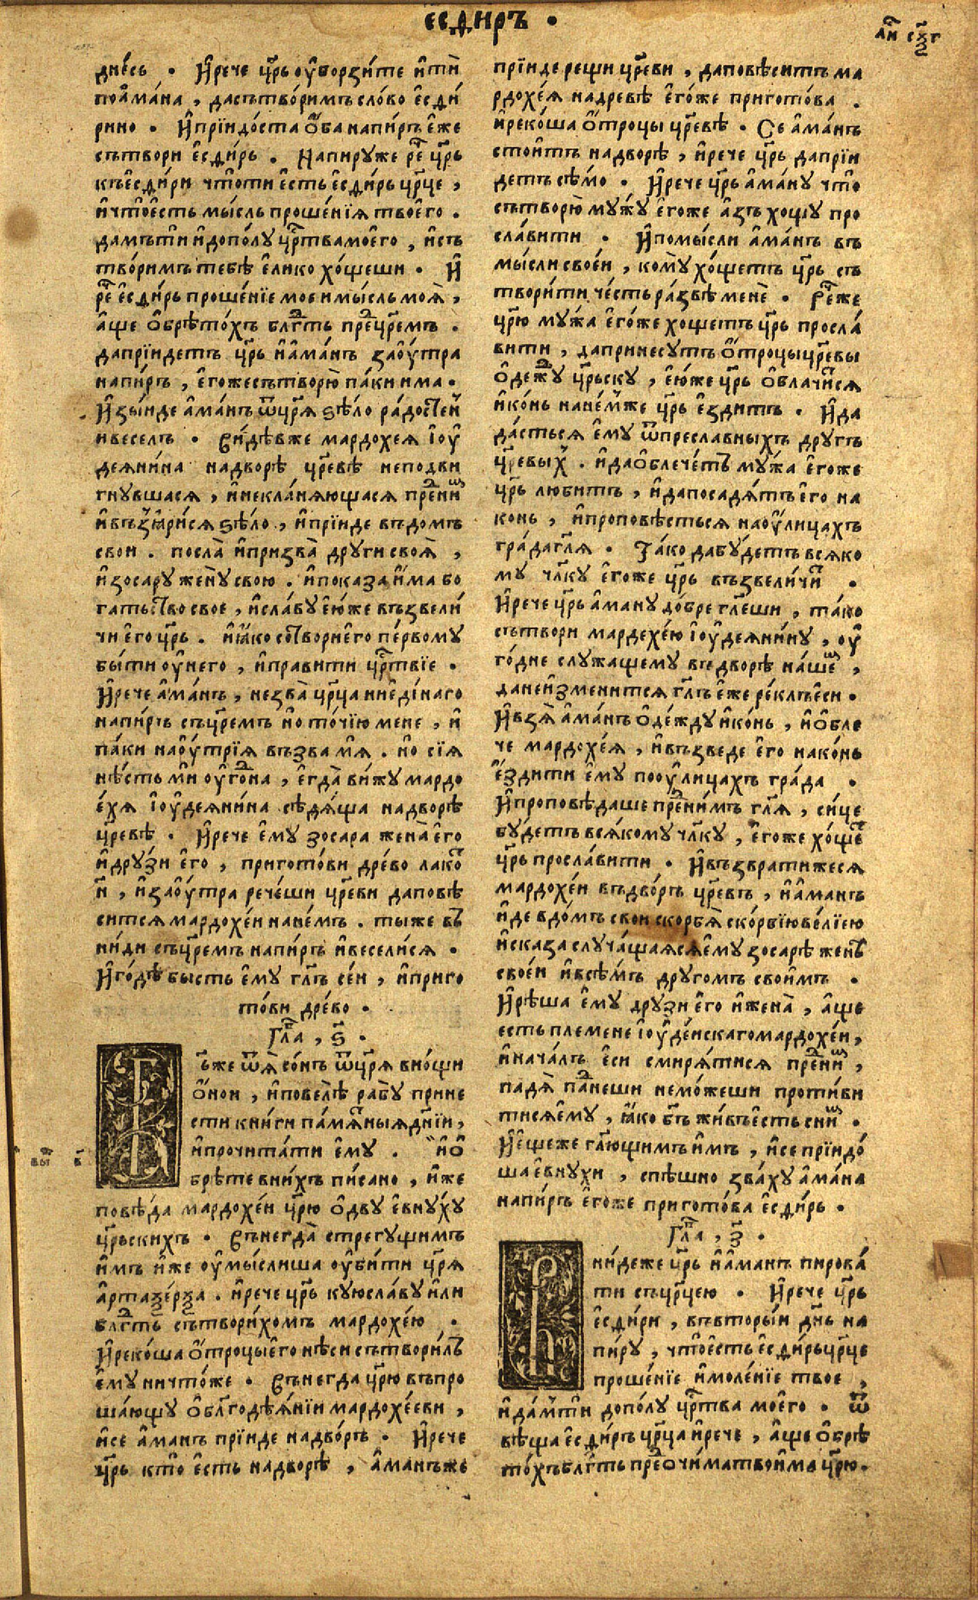 есдиръ ·
днесь · Ирече цр҃ь оуборзите ити
поамана , дасътворимъ слово есди
рино · Иприидоста оба напиръ еже
сътвори есдирь · Напируже ре цр҃ь
къесдири чтоти есть есдирь цр҃це ,
ичтоесть мысль прошенїя твоего ·
дамъти идополу цр҃твамоего , исъ
творимъ тебѣ елико хощеши · И
ре есдирь прошенїе мое имысль моя ,
аще обрѣтохъ бл҃гть пре цр҃емъ ·
дапрїидетъ цр҃ь иаманъ заоутра
напиръ , егожесътворю паки има ·
Изыиде аманъ ѿцр҃я ѕѣло радостеи
ивеселъ · Видѣвже мардохея іоу
деянина надворѣ цр҃евѣ неподви
гнувшася , инекланяющася пре ни
ивъзъярися ѕѣло , иприиде въдомъ
свои . посла ипризва други своя ,
изосару жену свою . ипоказа има бо
гатьство свое , иславу еюже възвели
чи его цр҃ь . иꙗко сотвориего первому
быти оунего , иправити цр҃твїе ·
Ирече аманъ , незва цр҃ца ниединаго
напиръ съцр҃емъ но точїю мене , и
паки наоутрїя възва мя . но сїя
нѣсть ми оугона , егда вижу мардо
ехя іоудеянина сѣдяща надворѣ
цр҃евѣ · Ирече ему зосара жена его
идрузи его , приготови древо лако
и , изаоутра речеши цр҃еви даповѣ
ситсямардохеи нанемъ . тыже въ
ниди съцр҃емъ напиръ ивеселися ·
Игодѣ бысть ему гл҃ъ сеи , ипригo
тови древо ·
Гл҃а , ѕ҃ ·
Тъже ѿя сонъ ѿцр҃я внощи
онои , иповелѣ рабу прине
сти книги памяныядн҃їи ,
ипрочитати ему . ио
брѣте внихъ писано , иже
повѣда мардохеи цр҃ю одву евнуху
цр҃ьскихъ · Вънегда стрегущимъ
имъ иже оумыслиша оубити цр҃я
артаѯерѯа . ирече цр҃ь куюславу или
бл҃гть сътворихомъ мардохею ·
Ирекоша отроцыего нѣси сътворилъ
ему ничтоже · Вънегда цр҃ю въпро
шающу обл҃годѣянїи мардохееви ,
исе аманъ прїиде надворъ · Ирече
цр҃ь кто есть надворѣ , аманъже
прїиде рещи цр҃еви , даповѣситъ ма
рдохея надревѣ егоже приготова .
ирекоша отроцы цр҃евѣ · Се аманъ
стоитъ надворѣ , ирече цр҃ь даприи
детъ сѣмо · Ирече цр҃ь аману что
сътворю мужу егоже азъ хощу про
славити · Ипомысли аманъ въ
мысли своеи , кому хощетъ цр҃ь съ
творити честь развѣ мене · Реже
цр҃ю мужа егоже хощетъ цр҃ь просла
вити , дапринесутъ отроцыцр҃евы
одежу цр҃ьску , еюже цр҃ь облачися
иконь нанемже цр҃ь ездитъ · Ида
дасться ему ѿпреславныхъ другъ
цр҃евых . идаоблечетъ мужа егоже
цр҃ь любитъ , идапосадятъ его на
конь , ипроповѣсться наоулицахъ
града гл҃я · Тако дабудетъ всяко
му чл҃ку егоже цр҃ь възвеличи ·
Ирече цр҃ь аману добре гл҃еши , тако
сътвори мардехею іоудеянину , оу
годне служащему въдворѣ наше ,
данеизменится гл҃ъ еже реклъеси ·
Ивзя аманъ одежду иконь , иобле
че мардохея , ивъзведе его наконь
ездити ему пооулицахъ града ·
Ипроповѣдаше пре нимъ гл҃я , сице
будетъ всякому чл҃ку , егоже хоще
цр҃ь прославити · Ивъзвратижеся
мардохеи въдворъ цр҃евъ , иаманъ
иде вдомъ свои скорбя скорбїювелїею
исказа случашаяся ему зосарѣ женѣ
своеи ивсѣмъ другомъ своимъ ·
Ирѣша ему друзи его ижена , аще
есть племене іоудеискагомардохеи ,
иначалъ еси смирятися пре ни ,
падя па неши неможеши противи
тисяему , ꙗко бг҃ъ живъесть сни ·
Иещеже гл҃ющимъ имъ , исе приидо
ша евнухи , спѣшно зваху амана
напиръ егоже приготова есдирь ·
Гл҃а , з҃ ·
Внидеже цр҃ь иаманъ пирова
ти съцр҃цею · Ирече цр҃ь
есдири , въвторыи дн҃ь на
пиру , чтоесть есдирьцр҃це
прошенїе имоленїе твое ,
идамти дополу цр҃тва моего · ѿ
вѣща есдиръ цр҃ца ирече , аще обрѣ
тохъбл҃гть пре очиматвоима цр҃ю ·